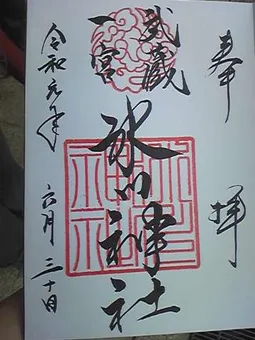 奉拝
武蔵
一宮
氷川神社
令和元年六月三十日